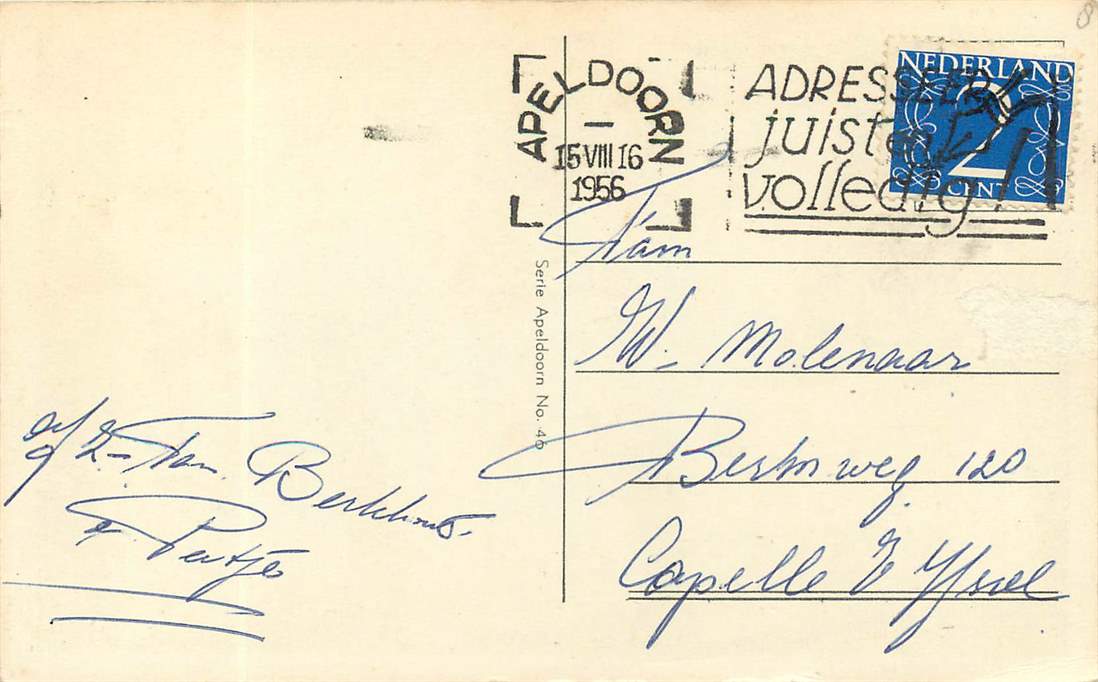 8
APELDOORN
15 VIII 16
1956
ADRESSEER
juist en
volledig!
NEDERLAND
2
CENT
Fam
W. Molenaar
120
Capelle Yssel
Serie Apeldoorn No. 46
Fam. Berkhout.